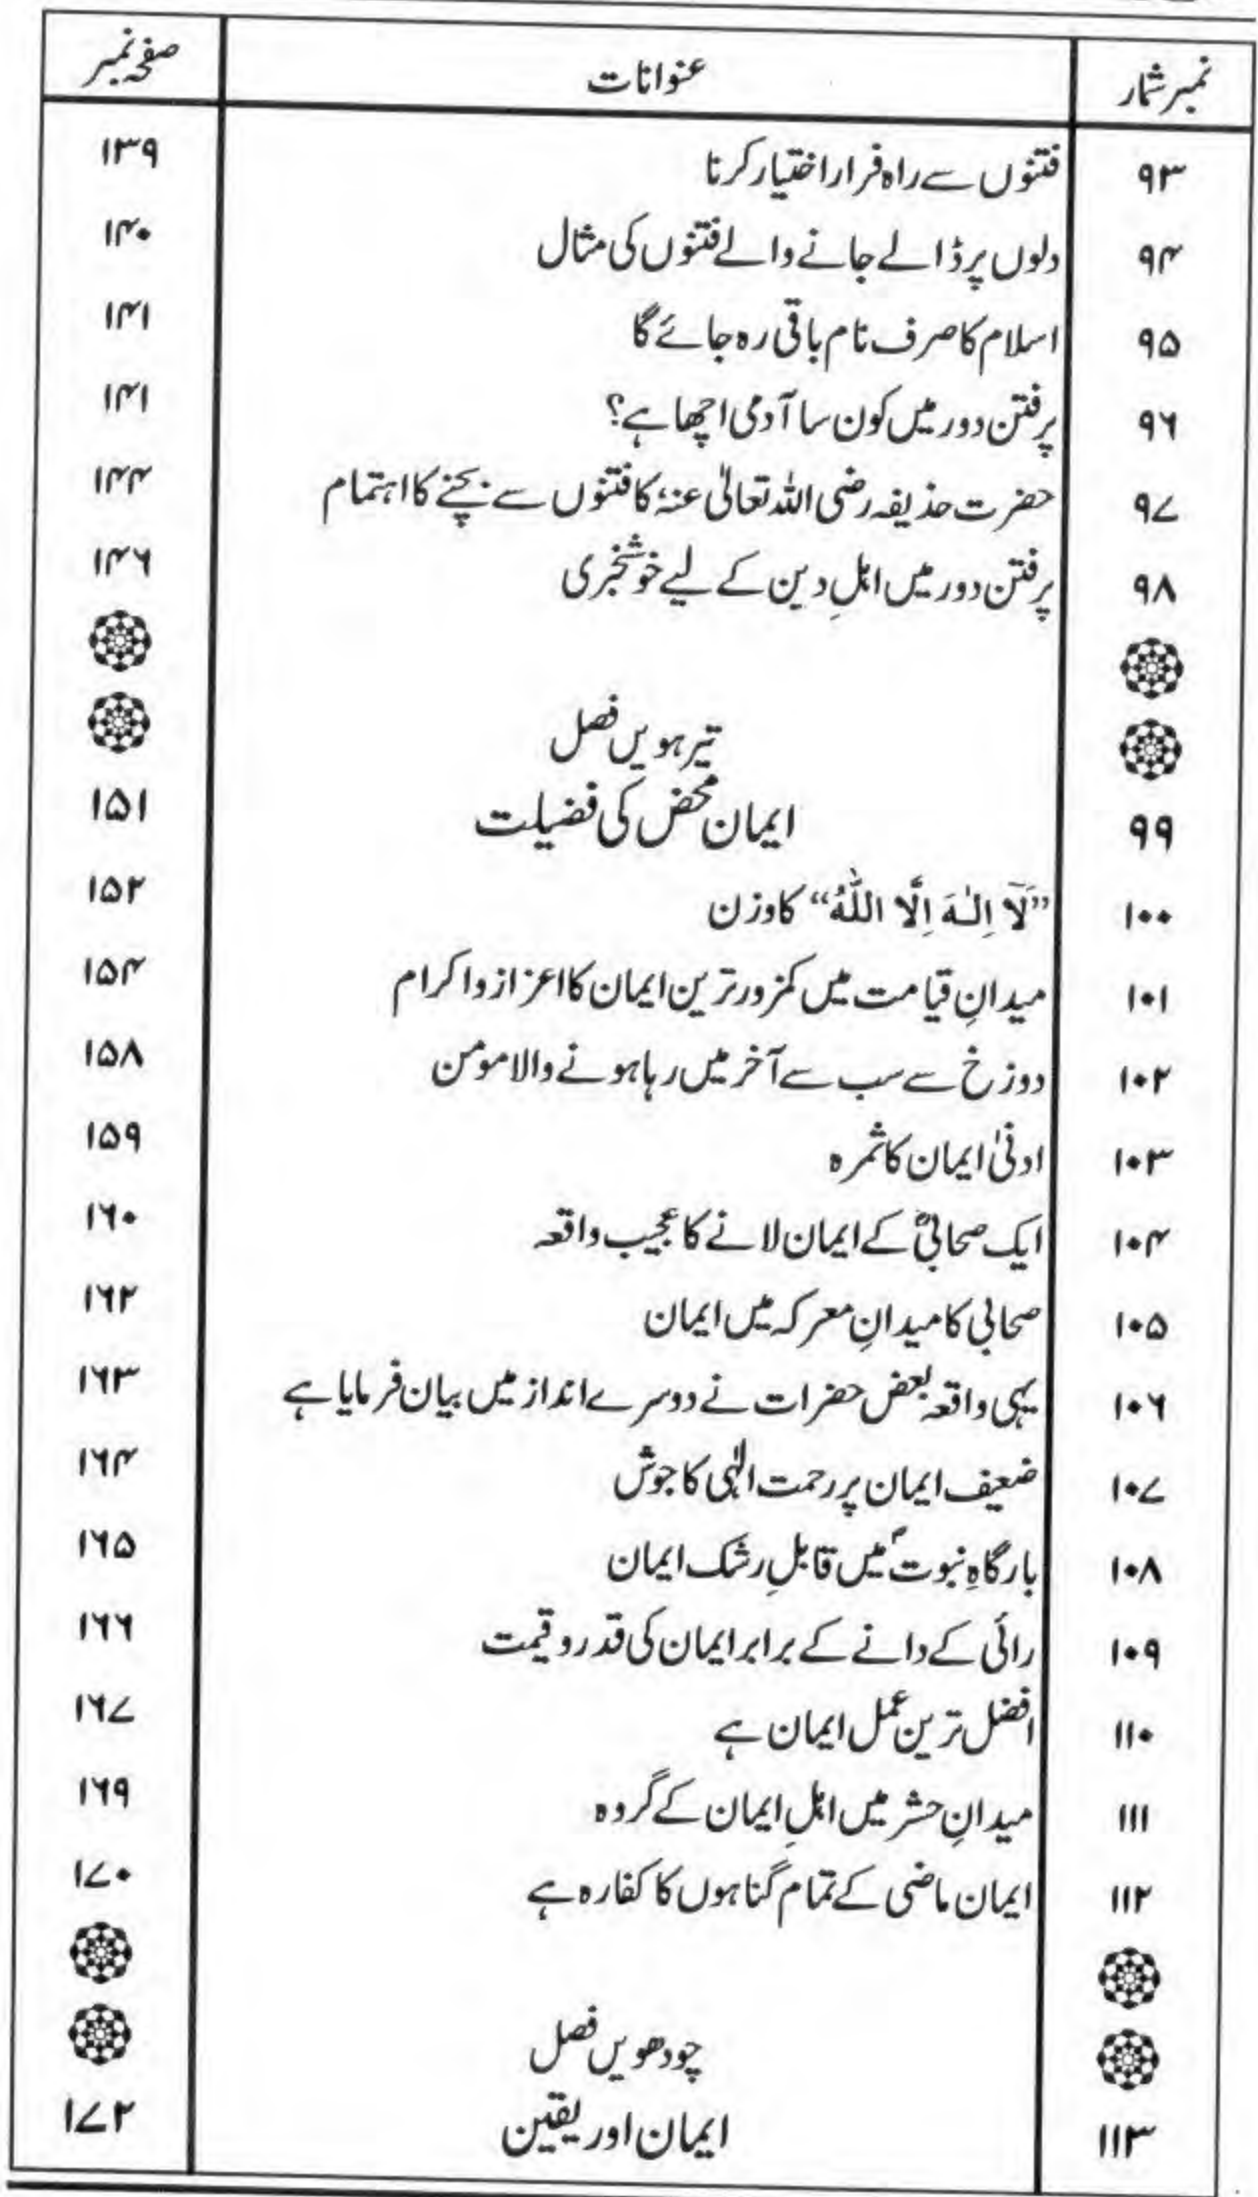 نمبر شمار عنوانات صفحہ نمبر
۹۳ فتنوں سے راہ فرار اختیار کرنا ۱۳۹
۹۴ دلوں پر ڈالے جانے والے فتنوں کی مثال ۱۴۰
۹۵ اسلام کا صرف نام باقی رہ جائے گا ۱۴۱
۹۶ پرفتن دور میں کون سا آدمی اچھا ہے؟ ۱۴۱
۹۷ حضرت حذیفہ رضی اللہ تعالیٰ عنہ، کا فتنوں سے بچنے کا اہتمام ۱۴۴
۹۸ پرفتن دور میں اہلِ دین کے لیے خوشخبری ۱۴۶
تیرہویں فصل
۹۹ ایمان محض کی فضیلت ۱۵۱
۱۰۰ ”لَآ اِلٰهَ اِلَّا اللّٰهُ“ کا وزن ۱۵۲
۱۰۱ میدانِ قیامت میں کمزور ترین ایمان کا اعزاز و اکرام ۱۵۴
۱۰۲ دوزخ سے سب سے آخر میں رہا ہونے والا مومن ۱۵۸
۱۰۳ ادنیٰ ایمان کا ثمرہ ۱۵۹
۱۰۴ ایک صحابیؓ کے ایمان لانے کا عجیب واقعہ ۱۶۰
۱۰۵ صحابی کا میدانِ معرکہ میں ایمان ۱۶۲
۱۰۶ یہی واقعہ بعض حضرات نے دوسرے انداز میں بیان فرمایا ہے ۱۶۳
۱۰۷ ضعیف ایمان پر رحمت الٰہی کا جوش ۱۶۴
۱۰۸ بارگاہِ نبوتؐ میں قابلِ رشک ایمان ۱۶۵
۱۰۹ رائی کے دانے کے برابر ایمان کی قدر و قیمت ۱۶۶
۱۱۰ افضل ترین عمل ایمان ہے ۱۶۷
۱۱۱ میدانِ حشر میں اہلِ ایمان کے گروہ ۱۶۹
۱۱۲ ایمان ماضی کے تمام گناہوں کا کفارہ ہے ۱۷۰
چودھویں فصل
۱۱۳ ایمان اور یقین ۱۷۲